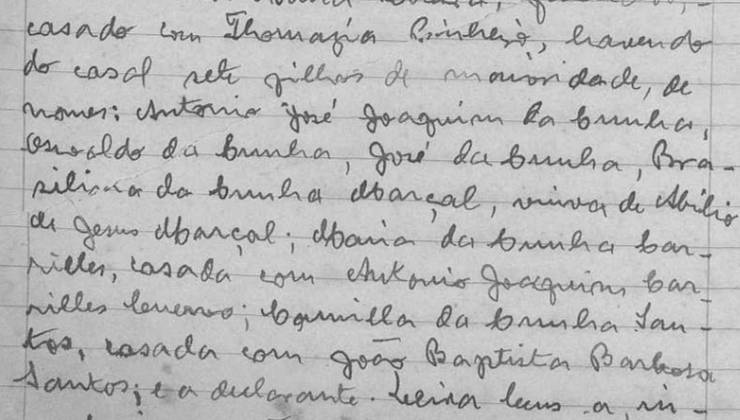 casado com Thomazia Pinheiro, havendo
do casal sete filhos de maioridade, de
nomes: Antonio José Joaquim da Cunha,
Oswaldo da Cunha, José da Cunha, Bra-
siliana da Cunha Marçal, viuva de Abilio
de Jesus Marçal; Maria da Cunha Car-
rilles, casada com Antonio Joaquim Car-
rilles; Camilla da Cunha San-
tos, casada com João Baptista Barbosa
Santos; e a declarante. Deixa bens a in-